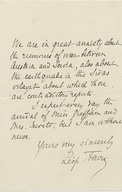 We are in great anxiety about
the rumours of war between
Austria and Servia, also about
the earthquake in the Sivas
vilayet about which there
are contradictory reports.
I expect every day the
arrival of Miss Graffam and
Mrs. Sewett, but I am without
news.
Yours very sincerely
Leop. Favre